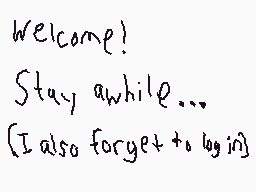 Welcome!
Stay awhile...
(I also forget to log in)